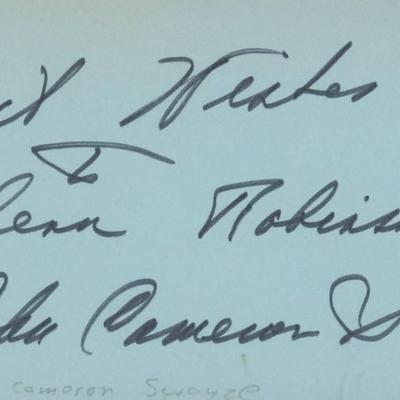 Wishes
To
Robins
Cameron S
Cameron Swayze